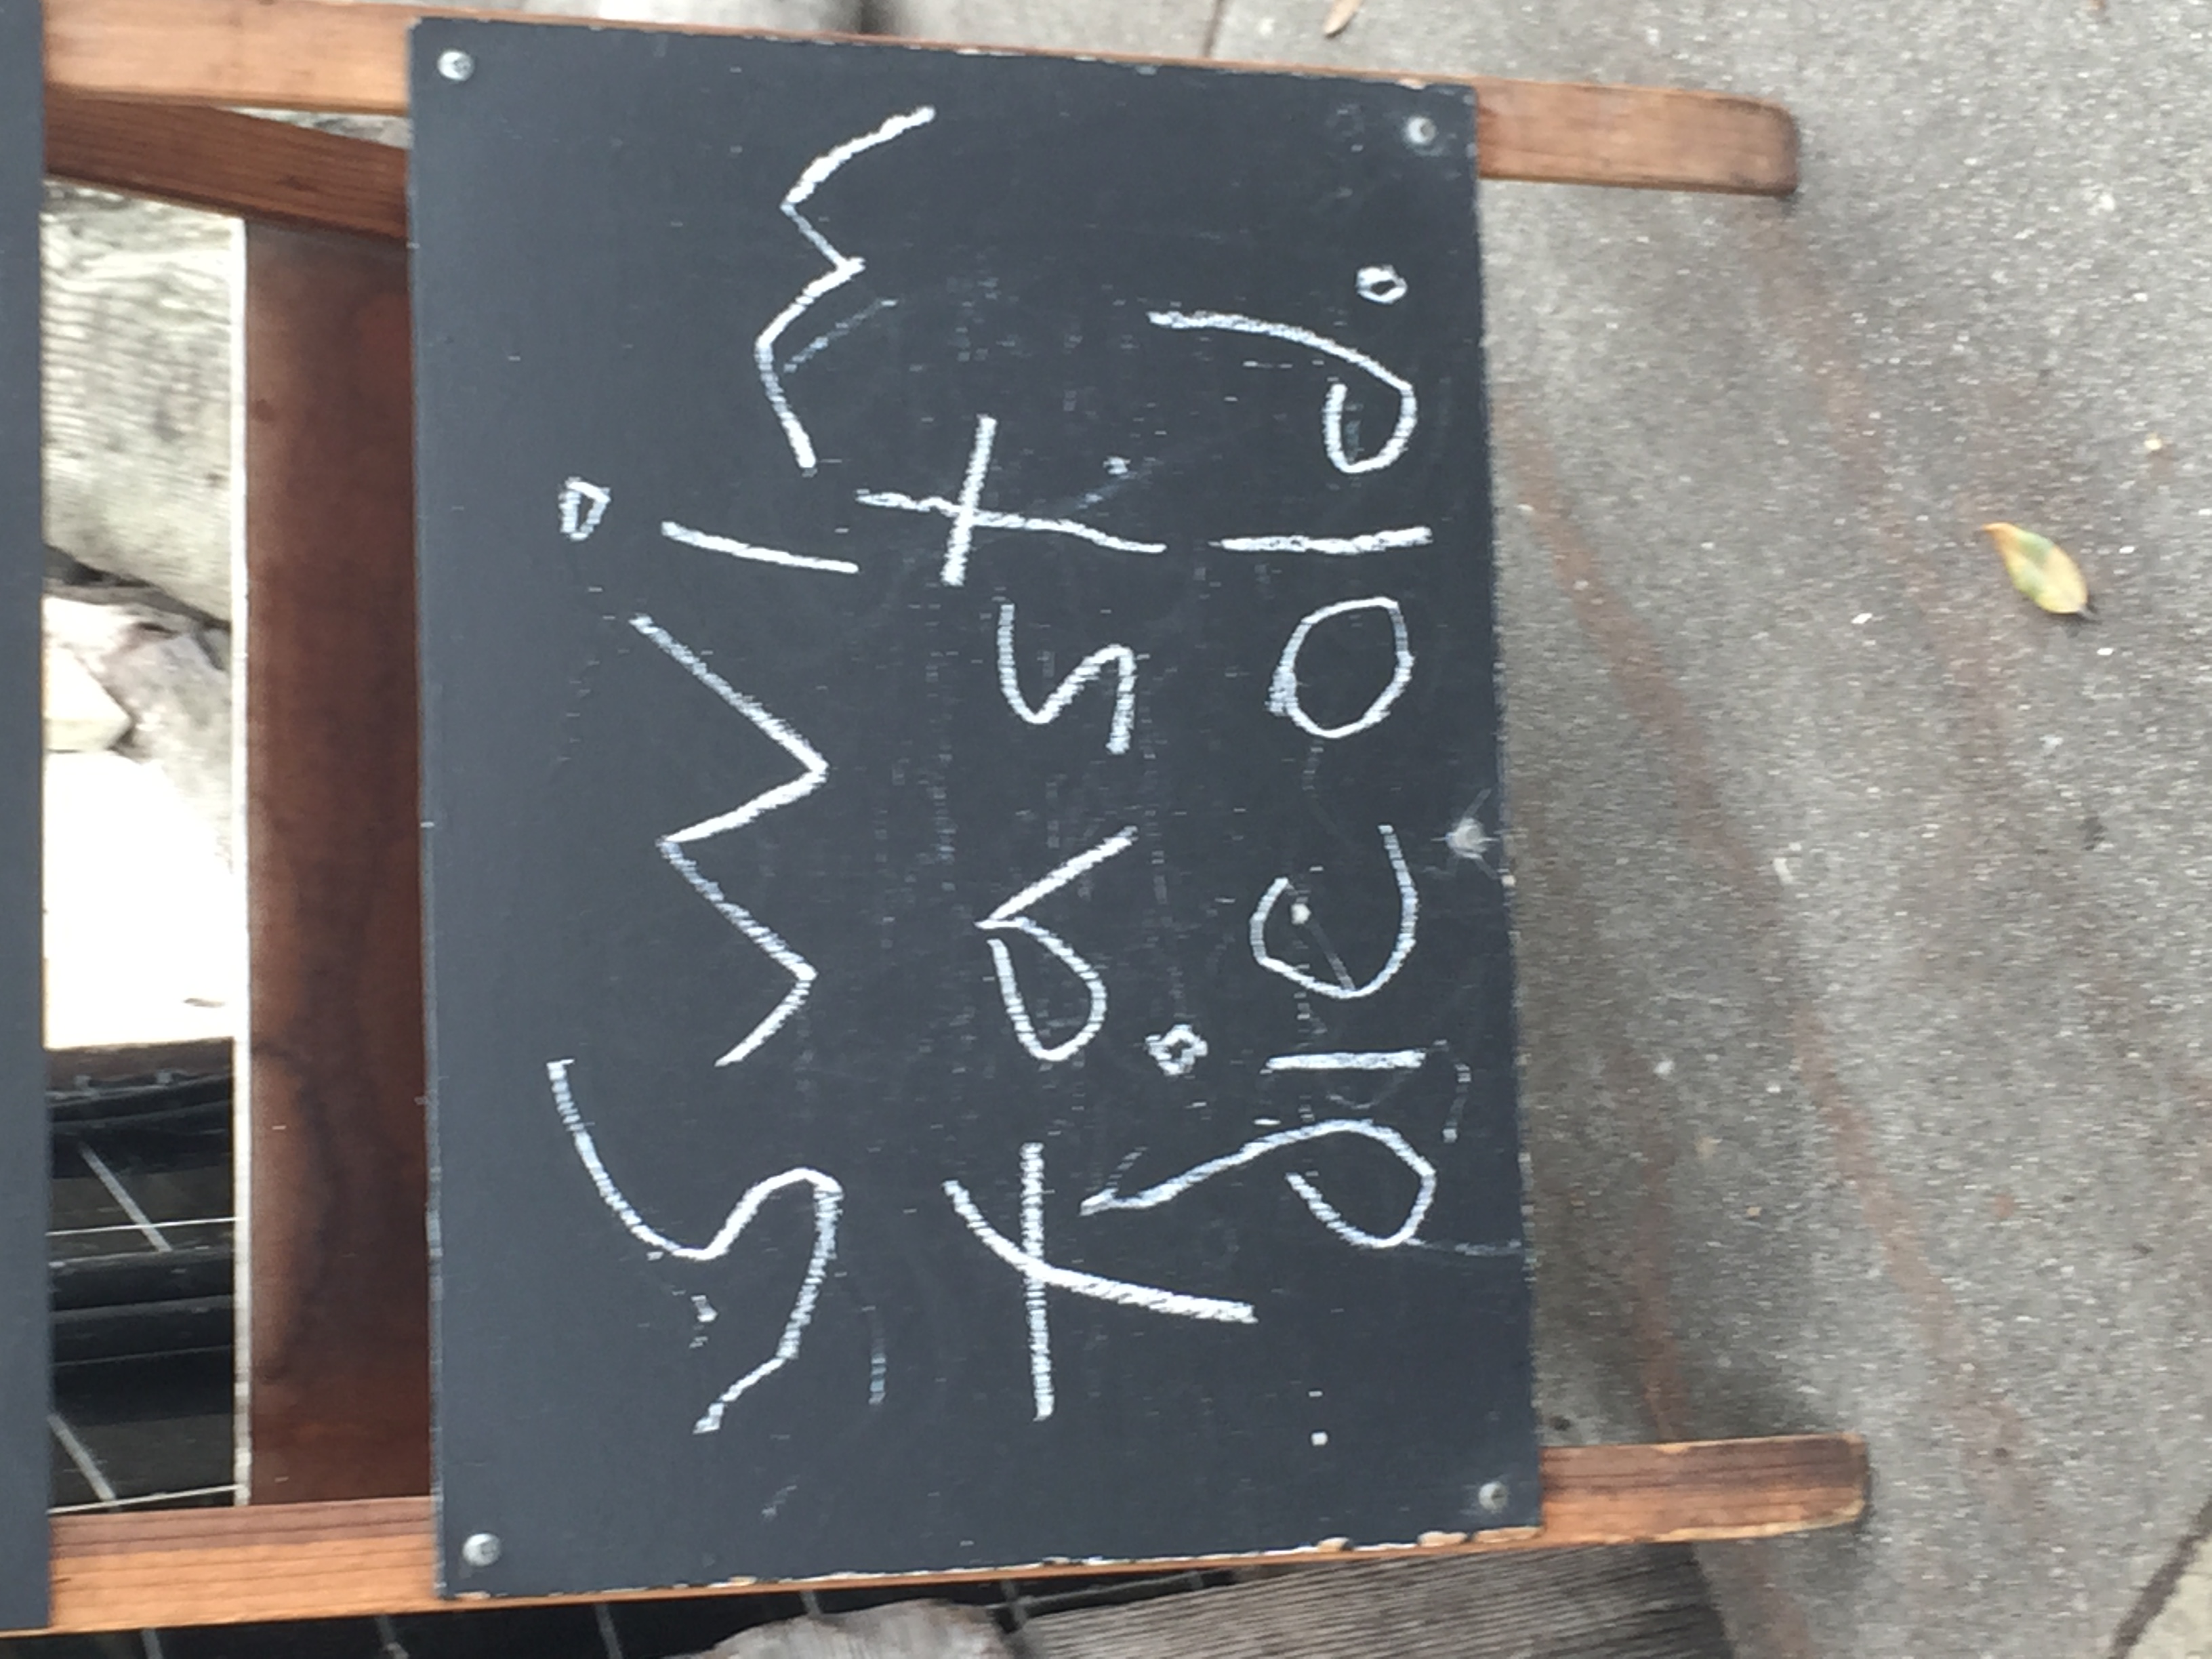 Swim
fast
die old.